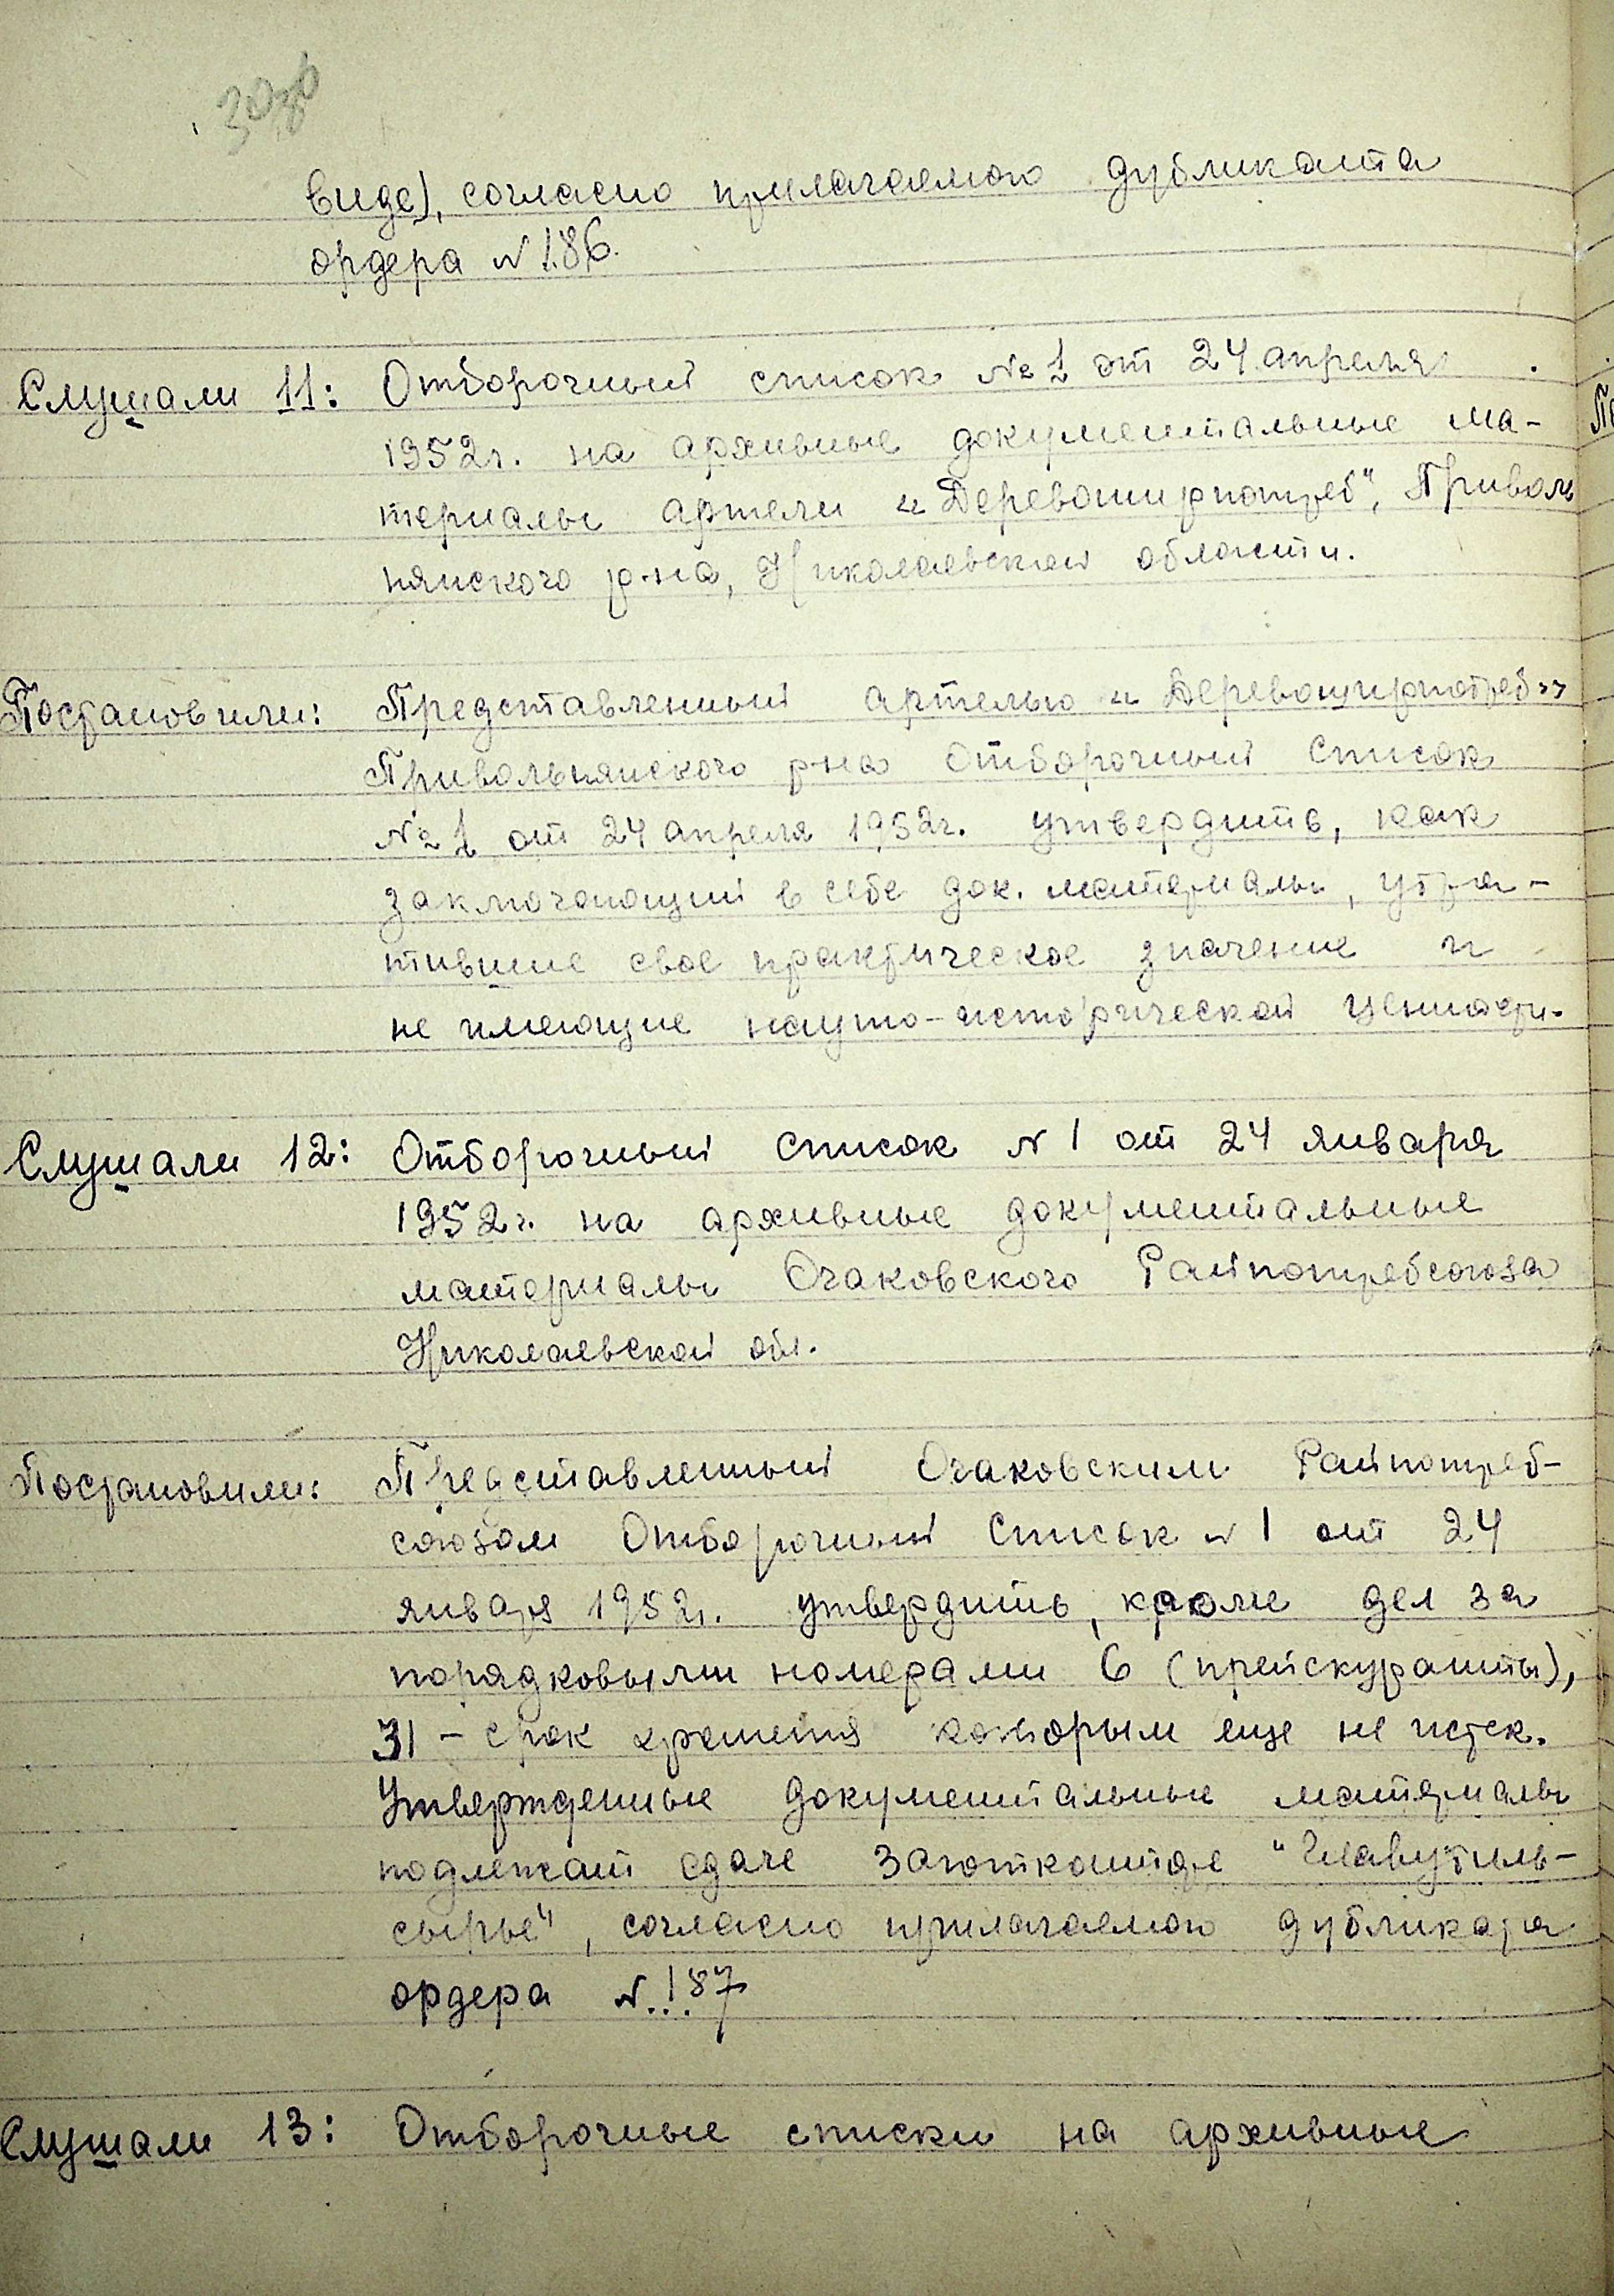 виде), согласно прилагаемого дубликата
ордера № 186.
Слушали 11: Отборочный список №1 от 24 апреля
1952г. на архивные документальные ма-
териалы артели „Деревоширпотреб", Приволь
нянского р-на, Николаевской области.
Постановили: Представленный артелью „Деревоширпотреб"
Привольнянского р-на Отборочный Список
№1 от 24 апреля 1952г. утвердить, как
заключающий в себе док. материалы, утра-
тившие свое практическое значение и
не имеющие научно-исторической ценности.
Слушали 12: Отборочный список № 1 от 24 января
1952г. на архивные документальные
материалы Очаковского Райпотребсоюза
Николаевской обл.
Постановили: Представленный Очаковским Райпотреб-
союзом Отборочный Список № 1 от 24
января 1952г. утвердить, кроме дел за
порядковыми номерами 6 (прейскуранты),
31 – срок хранения которым еще не истек.
Утвержденные документальные материалы
подлежат сдаче Заготконторе "Главутиль-
сырье", согласно прилагаемого дубликата
ордера № 187
Слушали 13: Отборочные списки на архивные